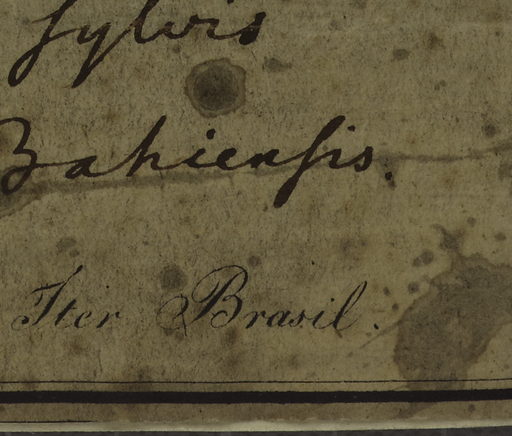 sylvis
Bahiensis.
Iter Brasil.